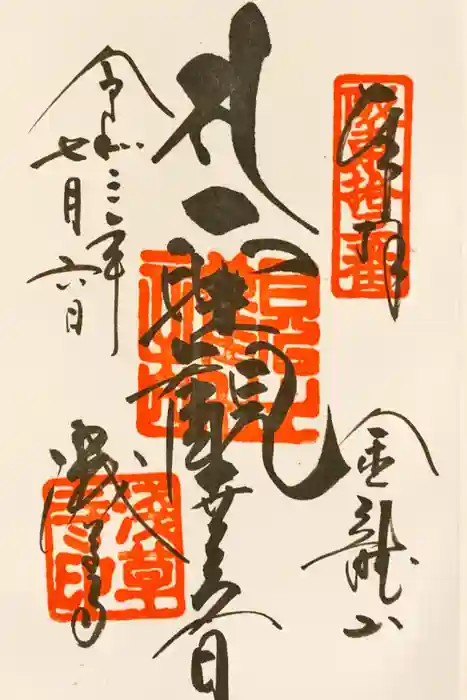 奉拝
金龍山
聖観世音
令和三年
七月六日
浅草寺
浅草寺印